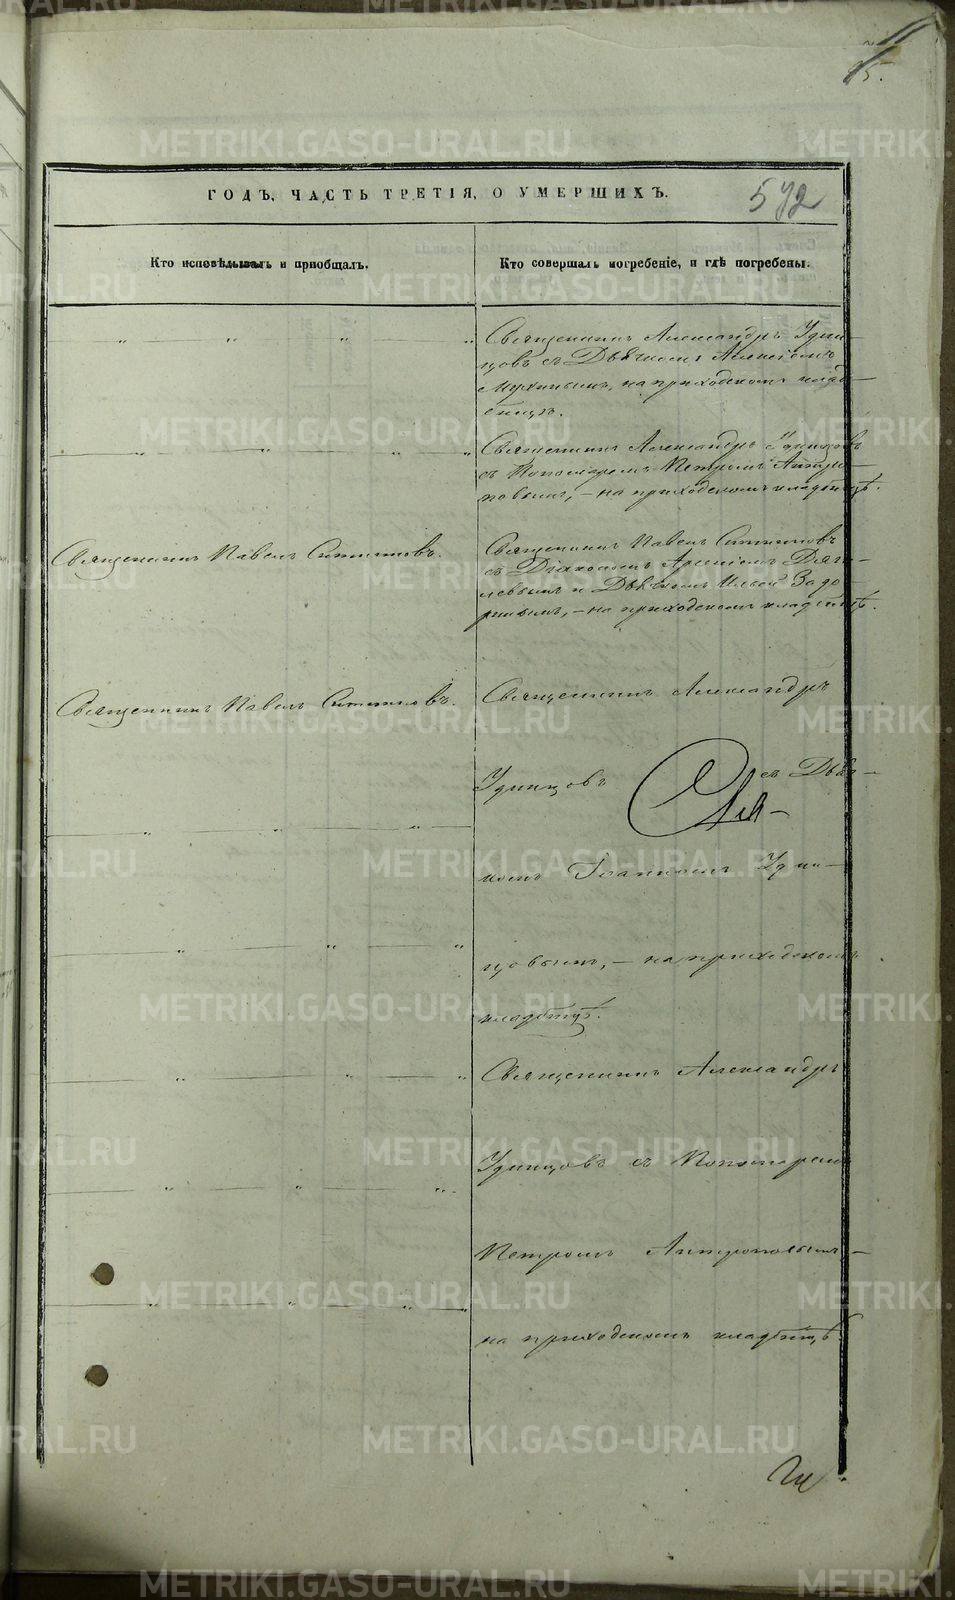 5.
ГОДЪ, ЧАСТЬ ТРЕТІЯ, О УМЕРШИХЪ.
572
Кто исповѣдывалъ и пріобщалъ.
Кто совершалъ погребеніе, и гдѣ погребены.
Священникъ Александръ Удин-
цовъ съ Дьячкомъ Алексіемъ
на приходскомъ клад-
бищѣ.
Священникъ Александръ Удинцовъ
съ Пономаремъ Петромъ Антро-
повымъ, - на приходскомъ кладбищѣ.
Священникъ Павелъ
Священникъ Павелъ
съ Діакономъ Арсеніемъ Дяги-
левымъ и Дьячкомъ Ильею Задо-
рнымъ, - на приходскомъ кладбищѣ.
Священникъ Павелъ
Священникъ Александръ
Удинцовъ съ Дьяч-
комъ Іоанномъ Удин-
цовымъ, - на приходскомъ
кладбищѣ.
Священникъ Александръ
Удинцовъ съ Пономаремъ
Петромъ Антроповымъ, -
на приходскомъ кладбищѣ.
METRIKI.GASO-URAL.RU